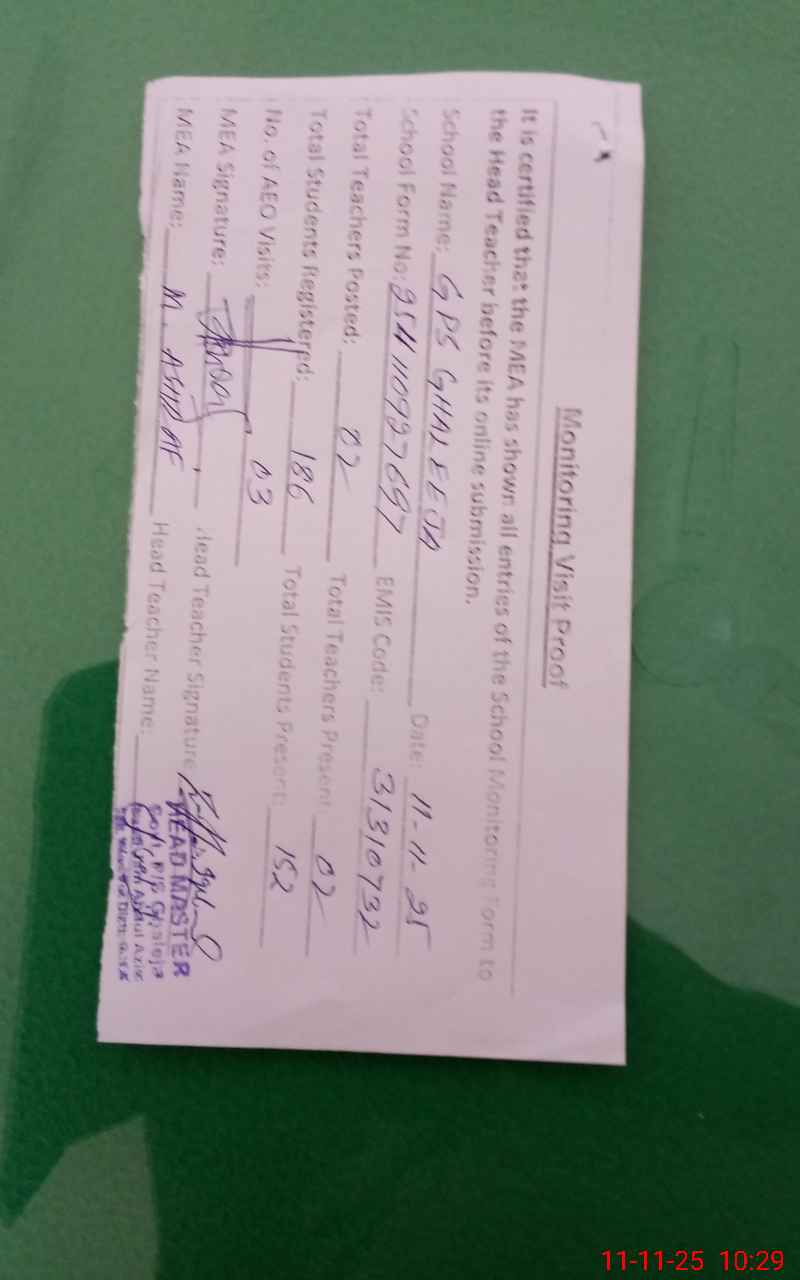 Monitoring Visit Proof
It is certified that the MEA has shown all entries of the School Monitoring Form to
the Head Teacher before its online submission.
School Name: GPS GHALEEJA Date: 11-11-25
School Form No: 2511110927697 EMIS Code: 31310732
Total Teachers Posted: 02 Total Teachers Present: 02
Total Students Registered: 186 Total Students Present: 152
No. of AEO Visits: 03
MEA Signature: Head Teacher Signature
MEA Name: M. ASHRAF Head Teacher Name:
HEAD MASTER
11-11-25 10:29